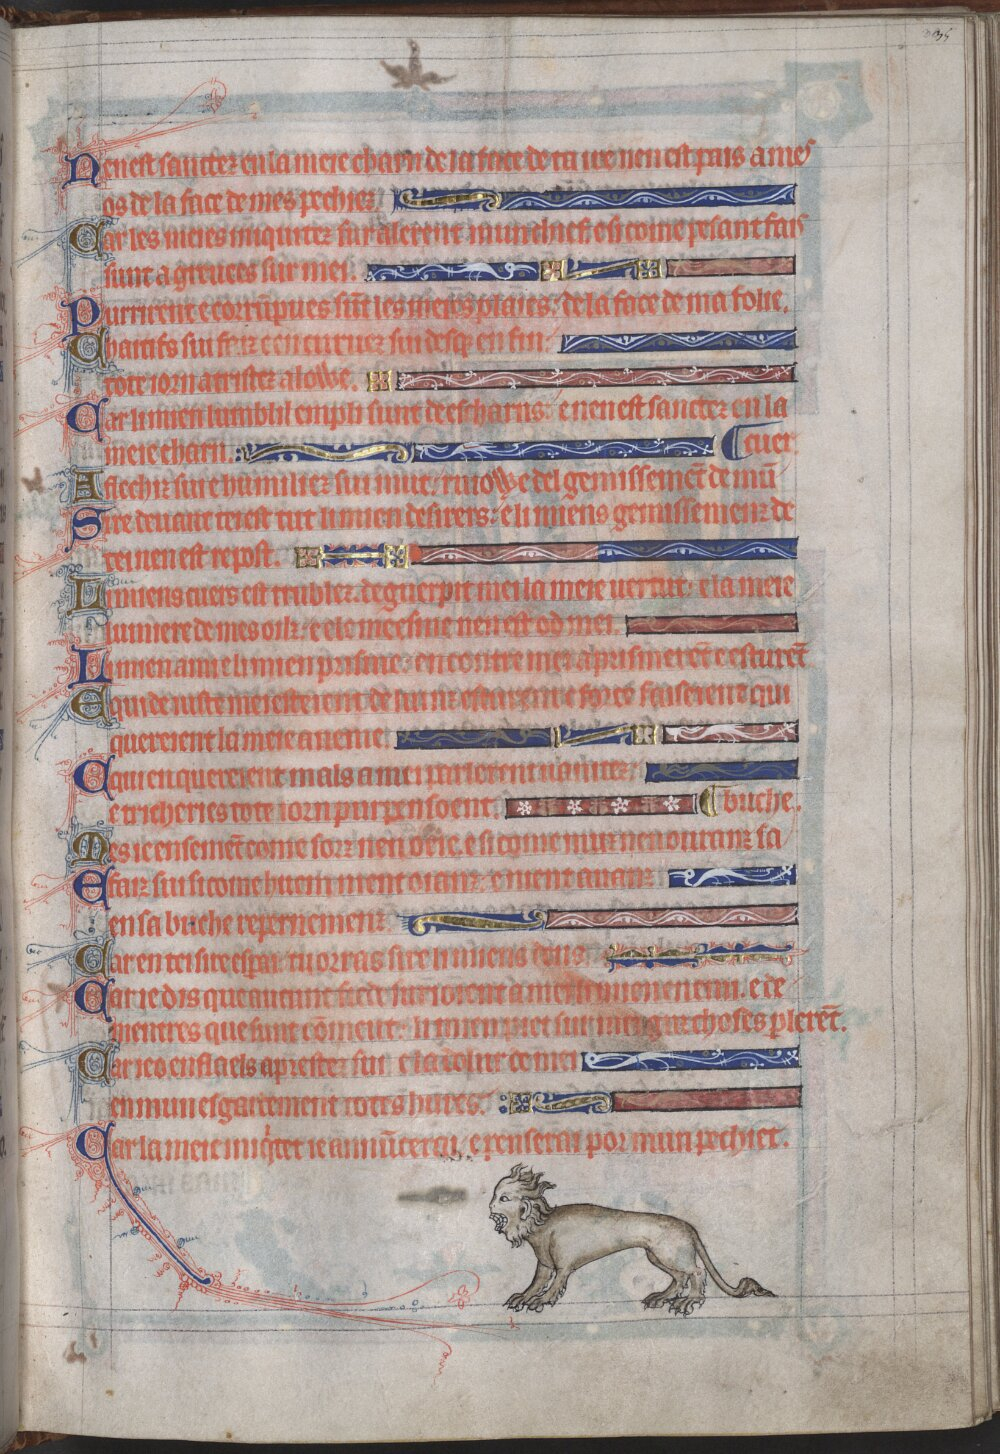 Nen est sanctez en la meie charn de la face de ta ire nen est pais a mes
os de la face de mes pechiez.
Car les meies iniquitez sur alerent mun chief: e si come pesant fais
sunt agreuees sur mei.
Purrirent e corrūpues sūt les meies plaies: de la face de ma folie.
Chaitifs sui feiz e encuruez sui desq̄ en fin.
tote iorn atristez alowe.
Car li mien lumblil empli sunt de escharns: e nen est sanctez en la
meie charn. cuer
Aflechiz sui e humiliez sui mut, ruiowe del gemissemēt de mū
Sire deuant tei est tut li mien desirers: e li miens gemissemenz de
tei nen est repost.
Li miens cuers est trublez. deguerpit mei la meie uertut: e la meie
lumiere de mes oilz. e ele meesme nen est od mei.
Li mien ami e li mien prosme: encontre mei aprismerēt e esturēt
E qui de iuste mei esteient de luinz esturent e force faiseient qui
quereient la meie aneme.
E qui enquereient mals a mei parlerent uanitez:
e tricheries tote iorn purpensoent. buche.
Mes ie ensemēt come sorz nen oeie. e si come muz nen ouranz sa
E faiz sui si come huem nient oianz. e nient auanz
en sa buche repernemenz
Car en tei sire espai. tu orras sire li miens deus.
Car ie dis que aucune fiede surioient a mei li mien enemi. e de
mentres que sunt cōmeut. li mien piet sur mei granz choses plerēt.
Car ieo en flaels aprestez sui e la dolur de mei
en mun esgardement totes hures.
Car la meie iniq̇tet ie annūcerai. e penserai por mun pechiet.